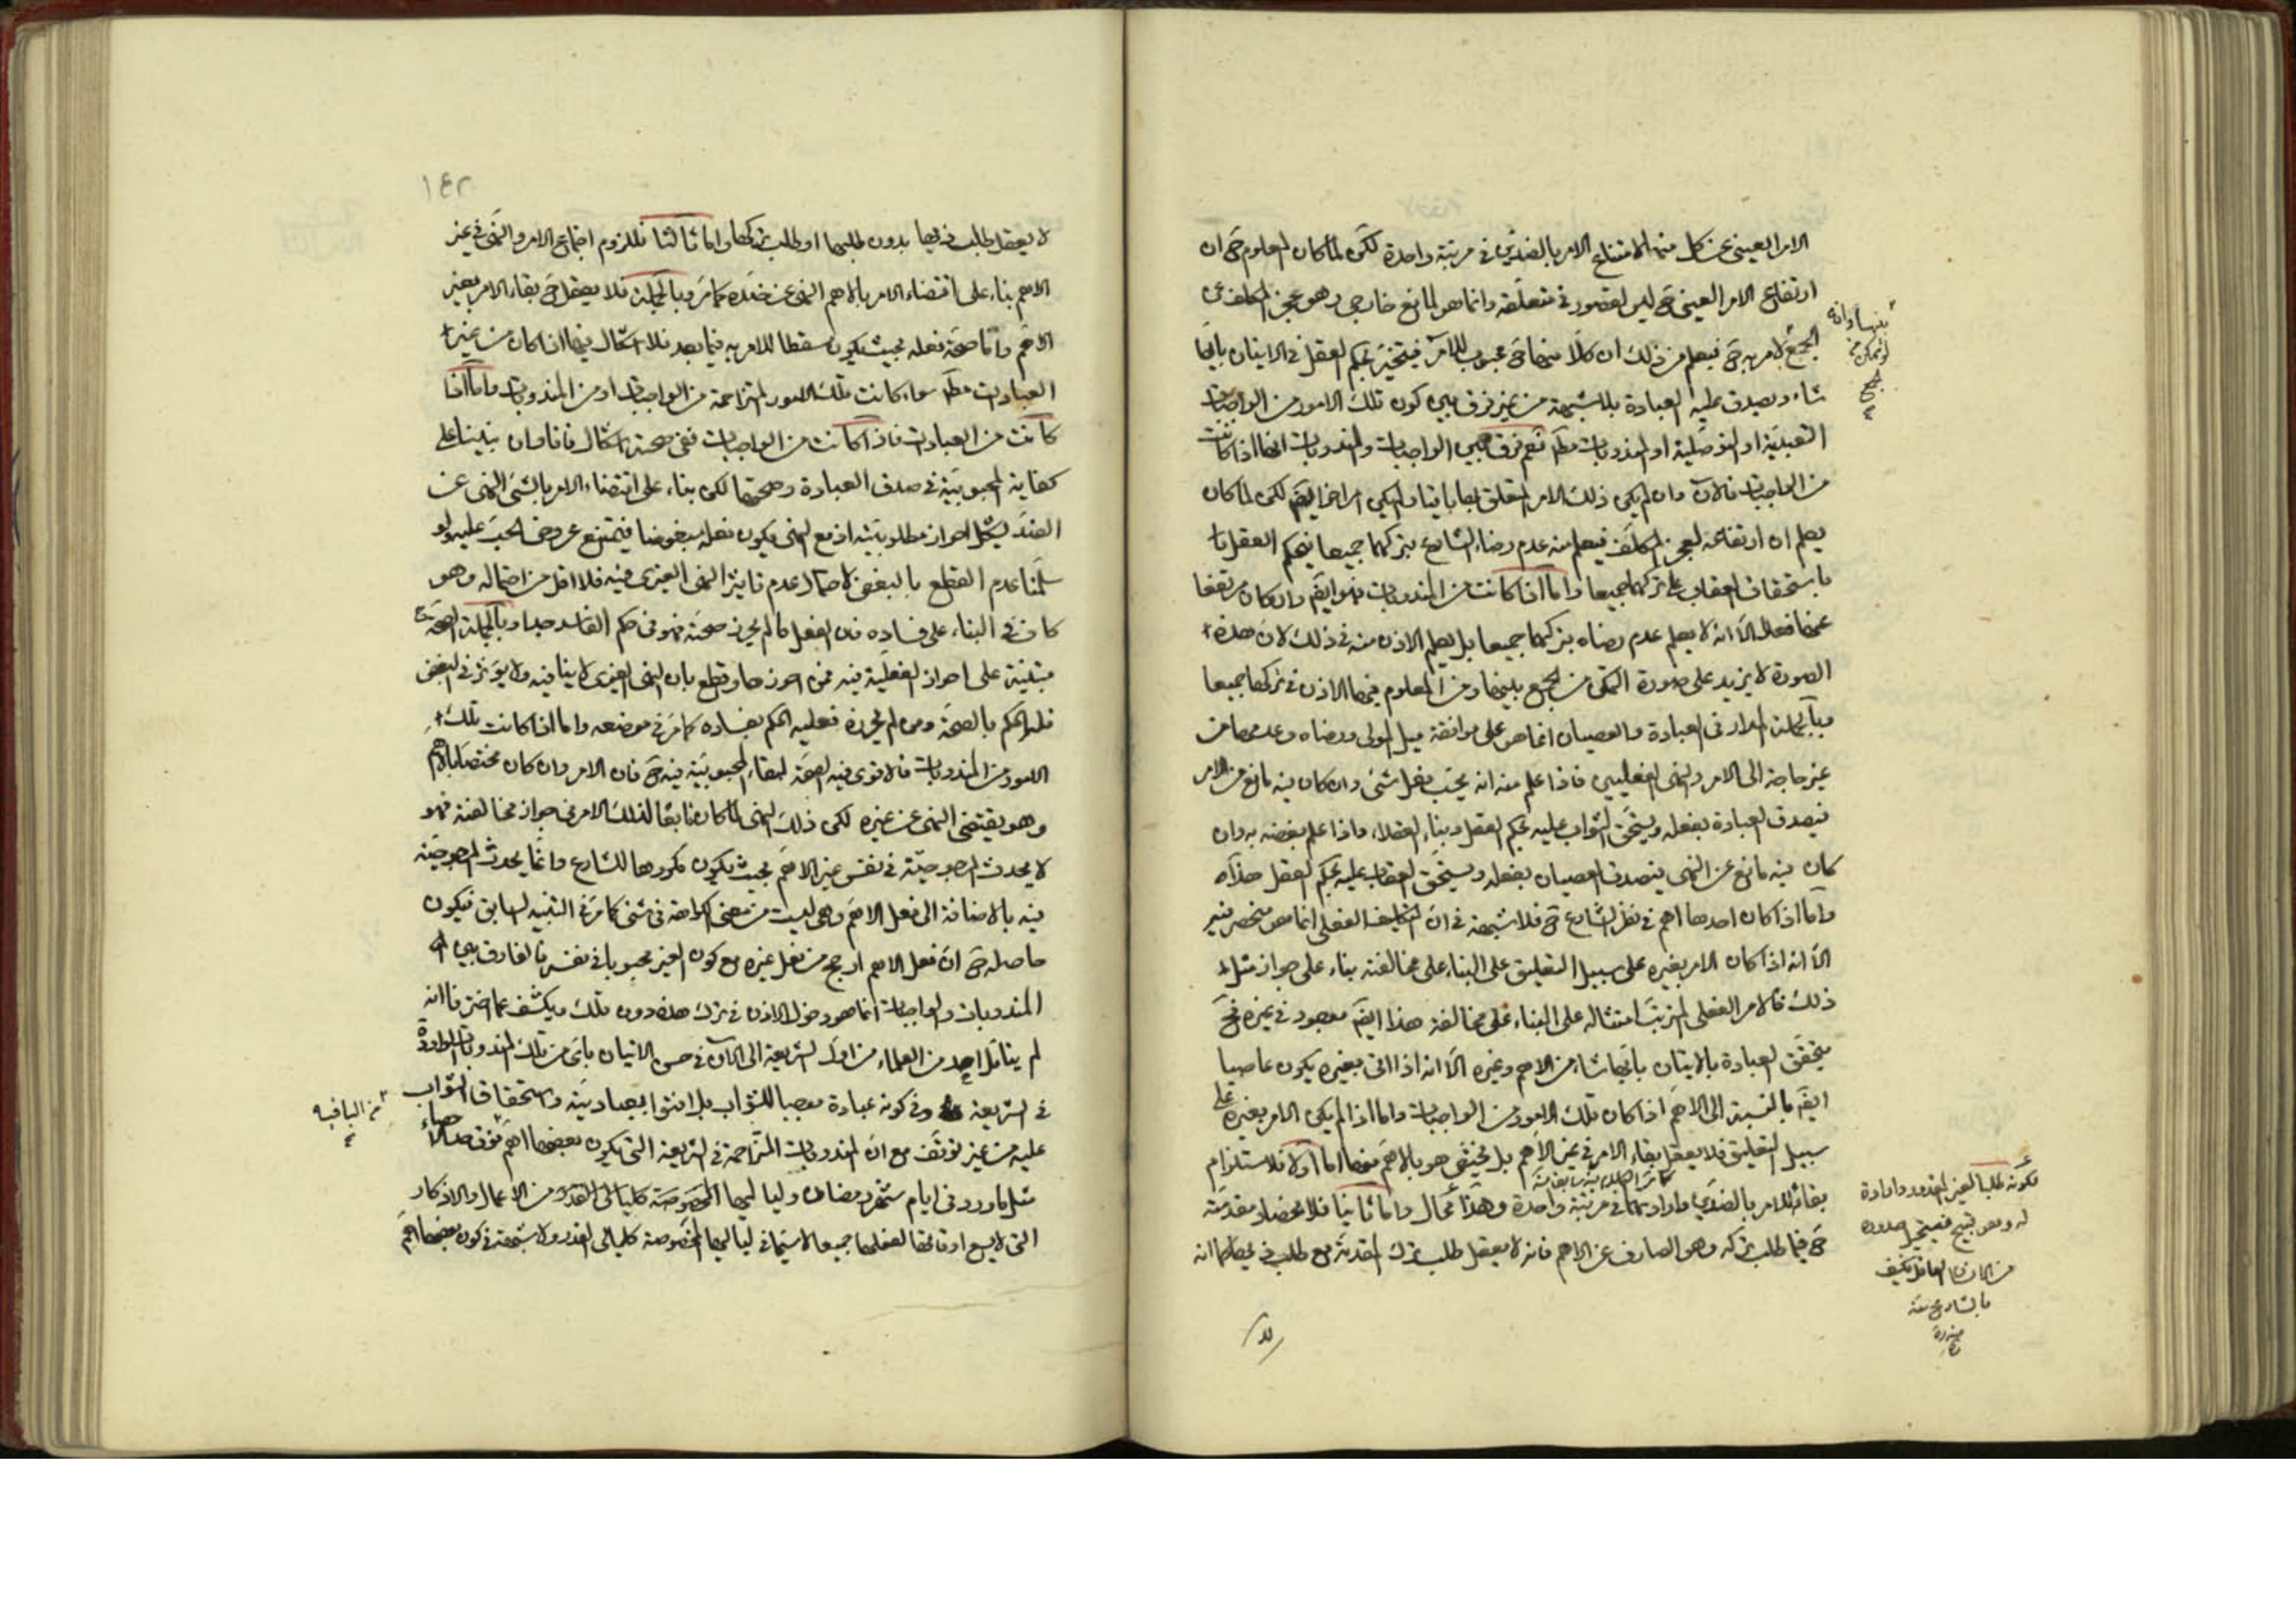 الامر العينى عن كل منهما لامتناع الامر بالضدين فى مرتبة واحدة لكن لما كان المعلوم ح ان
ارتفاع الامر العينى ح ليس لقصور فى متعلقه وانما هو لمانع خارجى وهو عجز المكلف عن
الجمع لامر به ح فيعلم من ذلك ان كلا منهما ح محبوب للامر فيتخير بحكم العقل فى الاتيان بايها
شاء ويصدق عليه العبادة بلا شبهة من غير فرق بين كون تلك الامور من الواجبات
التعبدية او التوصلية او المندوبات مط نعم فرق بين الواجبات والمندوبات انها اذا كانت
من الواجبات فالان وان لم يكن ذلك الامر المتعلق بها باقيا ولم يكن امر اخر ايضا لكن لما كان
يعلم ان ارتفاعه لعجز المكلف فيعلم منه عدم رضاء الشارع بتركهما جميعا فيحكم العقل
باستحقاق العقاب على تركهما جميعا واما اذا كانت من المندوبات فهو ايض وان كان مرتفعا
عنها فعلا الا انه لا يعلم عدم رضاه بتركهما جميعا بل يعلم الاذن منه فى ذلك لان هذه
الصورة لا يزيد على صورة التمكن من الجمع بينهما ومن المعلوم فيها الاذن فى تركها جميعا
وبالجملة المدار فى العبادة والعصيان انما هو على موافقة ميل المولى ورضاه وعدمها من
غير حاجة الى الامر والنهى الفعليين فاذا علم منه انه يحب فعل شئ وان كان فيه مانع من الامر
فيصدق العبادة بفعله ويستحق الثواب عليه بحكم العقل وبناء العقلاء واذا علم بغضه به وان
كان فيه مانع عن النهى فيصدق العصيان بفعله ويستحق العقاب عليه بحكم العقل هذا
واما اذا كان احدها اهم فى نظر الشارع ح فلا شبهة فى ان التكليف الفعلى انما هو منحصر فيه
الا انه اذا كان الامر بغيره على سبيل التعليق على البناء على مخالفته بناء على جواز مثل
ذلك فالامر الفعلى المرتب امتثاله على البناء على مخالفة هذا ايض موجود فى غيره فح
يتحقق العبادة بالاتيان بايها شاء من الاهم وغيره الا انه اذا اتى بغيره يكون عاصيا
ايض بالنسبة الى الاهم اذا كان تلك الامور من الواجبات واما اذا لم يكن الامر بغيره على
سبيل التعليق فلا يعقل بقاء الامر فى غير الاهم بل يختص هو بالاهم منها اما اولا فلاستلزام
بقائه للامر بالضدين وارادتهما فى مرتبة واحدة وهذا محال واما ثانيا فلا محضاد مقدمته
ح فيما طلب تركه وهو الصارف عن الاهم فانه لا يعقل طلب ترك المقدمة مع طلب ذيها كما انه
لكونه طلبا لغير المقدور وارادة
له وهو قبيح فيستحيل صدوره
من العاقل فكيف
بالشارع
منه ره
١٤٢
لا يعقل طلب ذيها بدون طلبها او طلب تركها واما ثالثا فللزوم اجتماع الامر والنهى فى غير
الاهم بناء على اقتضاء الامر بالاهم النهى عن ضده كما مر وبالجملة فلا يعقل ح بقاء الامر بغير
الاهم واما صحة فعله بحيث يكون مسقطا للامر به فيما بعد فلا اشكال فيها اذا كان من غير
العبادات مط سواء كانت تلك الامور المتزاحمة من الواجبات او من المندوبات واما اذا
كانت من العبادات فاذا كانت من الواجبات ففى صحته اشكال فانا وان بنينا على
كفاية المحبوبية فى صدق العبادة وصحتها لكن بناء على اقتضاء الامر بالشئ النهى عن
الضد يشكل احراز مطلوبيته اذ مع النهى يكون فعله مبغوضا فيمتنع عروض الحب عليه ولو
سلمنا عدم القطع بالبغض لاحتمال عدم تاثير النهى الغيرى فيه فلا اقل من احتماله وهو
كاف فى البناء على فساده فان الفعل ما لم يحرز صحته فهو فى حكم الفاسد جدا وبالجملة الصحة
مبتنية على احراز الفعلية فيه فمن احرزها وقطع بان النهى الغيرى لا ينافيه ولا يؤثر فى البغض
فله الحكم بالصحة ومن لم يحرزه فعليه الحكم بفساده كما مر فى موضعه واما اذا كانت تلك
الامور من المندوبات فالاقوى فيه الصحة لبقاء المحبوبية فيه ح فان الامر وان كان مختصا بالاهم
وهو يقتضى النهى عن غيره لكن ذلك النهى لما كان تابعا لذلك الامر فى جواز مخالفته فهو
لا يحدث المرجوحية فى نفس غير الاهم بحيث يكون مكروها للشارع وانما يحدث المرجوحية
فيه بالاضافة الى فعل الاهم وهى ليست من معنى الكراهة فى شئ كما مر فى التنبيه السابق فيكون
حاصله ح ان فعل الاهم ارجح من فعل غيره مع كون الغير محبوبا فى نفسه فالفارق بين
المندوبات والواجبات انما هو دخول الاذن فى ترك هذه دون تلك ويكشف عما اخترنا انه
لم يتامل احد من العلماء من اول الشريعة الى الان فى حسن الاتيان باى من تلك المندوبات الواردة
فى الشريعة وفى كونه عبادة موجبا للثواب بل افتوا بعباديته واستحقاق الثواب
عليه من غير توقف مع ان المندوبات المتزاحمة فى الشريعة التى يكون بعضها اهم فوق حد الاحصاء
مثل ما ورد فى ايام شهر رمضان ولياليها المخصوصة كليالى القدر من الاعمال والاذكار
التى لا يسع اوقاتها لفعلها جميعا لا سيما فى لياليها المخصوصة كليالى القدر ولا شبهة فى كون بعضها اهم
من الباقيه